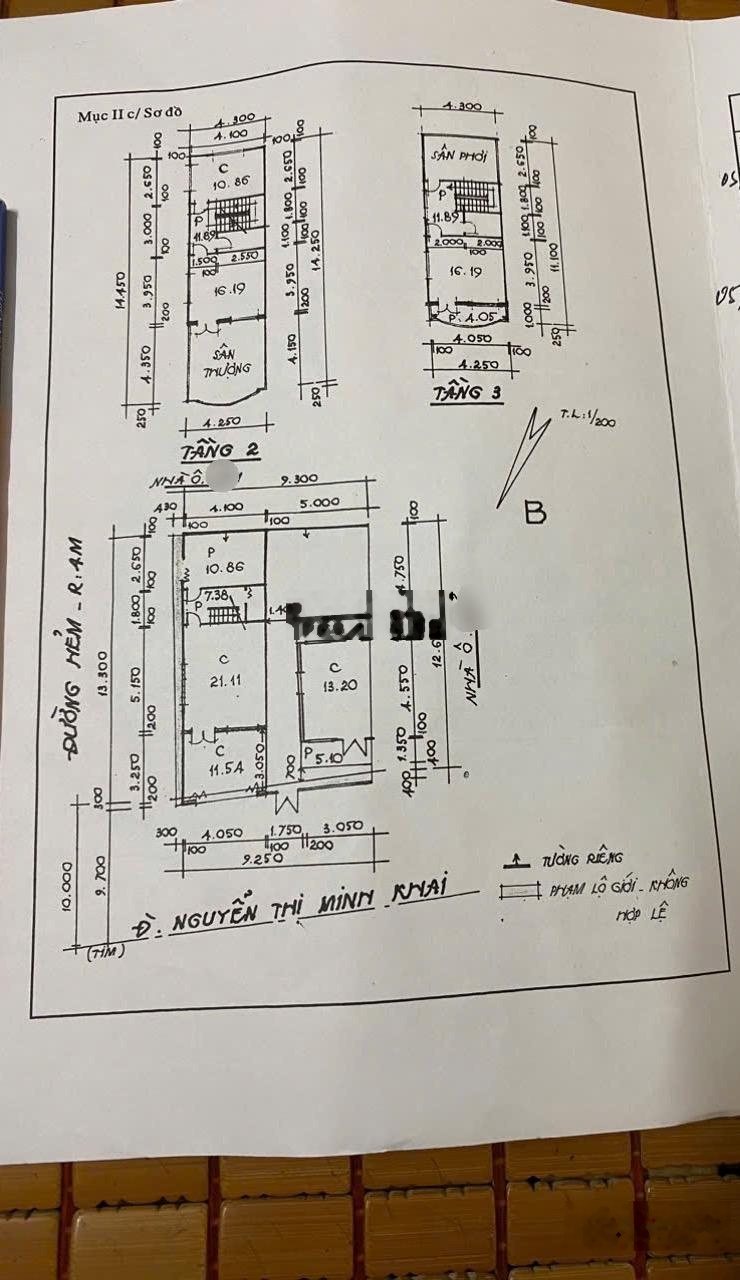 Mục II c/ Sơ đồ
4.300
4.100
100
100
100
2.650
100
3.000
100
3.950
200
4.350
250
14.450
C
10.86
P
11.89
1.500
2.550
100
16.19
SÂN
THƯỢNG
100
2.650
100
1.800
100
1.100
3.950
200
4.150
250
14.250
4.250
TẦNG 2
4.300
SÂN PHƠI
P
11.89
2.000
2.000
100
16.19
P. 4.05
100
2.650
100
1.800
100
1.100
3.950
200
1.000
250
11.100
4.050
100
100
4.250
TẦNG 3
T.L: 1/200
B
NHÀ Ô.
9.300
430
4.100
5.000
100
100
ĐƯỜNG HẺM - R: 4M
13.300
100
2.650
100
1.800
100
5.150
200
3.250
200
300
10.000
9.700
(TIM)
P
10.86
7.38
P
C
21.11
C
11.54
3.050
700
C
13.20
P 5.10
100
4.750
4.550
100
1.350
400
400
NHÀ Ô.
300
4.050
1.750
3.050
100
100
200
9.250
Đ. NGUYỄN THỊ MINH KHAI
TƯỜNG RIÊNG
PHẠM LỘ GIỚI - KHÔNG
HỢP LỆ